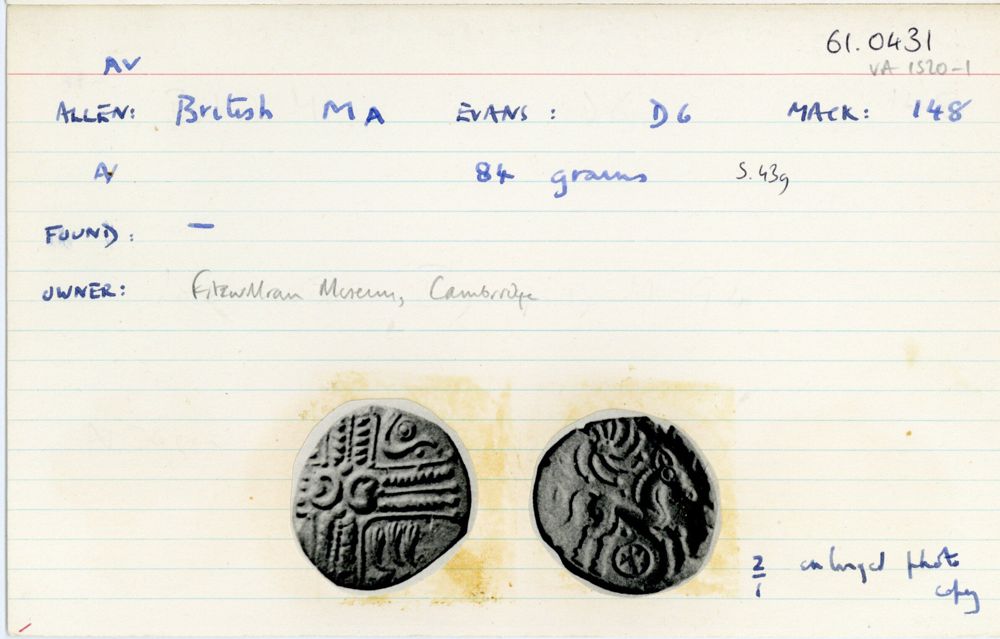 61.0431
VA 1520-1
AV
ALLEN: British MA EVANS: D6 MACK: 148
AV 84 grains S.439
FOUND: —
OWNER: Fitzwilliam Museum, Cambridge
2/1 enlarged photo
copy